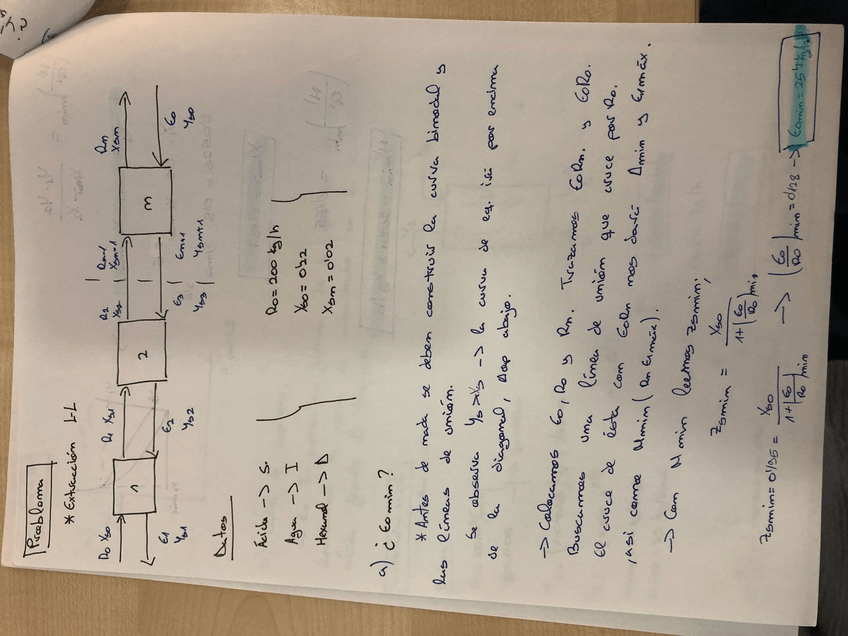 Problema
* Extracción L-L
R0 XS0
R1 XS1
R2 XS2
Rn-1 XSn-1
Rn XSn
1
2
n
E1 YS1
E2 YS2
E3 YS3
En+1 YSn+1
E0 YS0
Datos
Ácido -> S
Agua -> I
Hexanol -> D
R0 = 200 kg/h
XS0 = 0'22
XSn = 0'02
a) ¿E0 min?
* Antes de nada se deben construir la curva binodal y
las líneas de unión.
Se observa YS > XS -> la curva de eq. irá por encima
de la diagonal, Δop abajo.
-> Colocamos E0, R0 y Rn. Trazamos E0Rn. y E0R0.
Buscamos una línea de unión que cruce por R0.
El cruce de ésta con E0Rn nos dará Δmin y E1máx.
, así como Mmin (Rn E1máx).
-> Con M min leemos zSmin;
zSmin = XS0 / 1+(E0/R0)min
zSmin = 0'195 = XS0 / 1+(E0/R0)min -> (E0/R0)min = 0'128 -> E0min = 25'7 kg/h